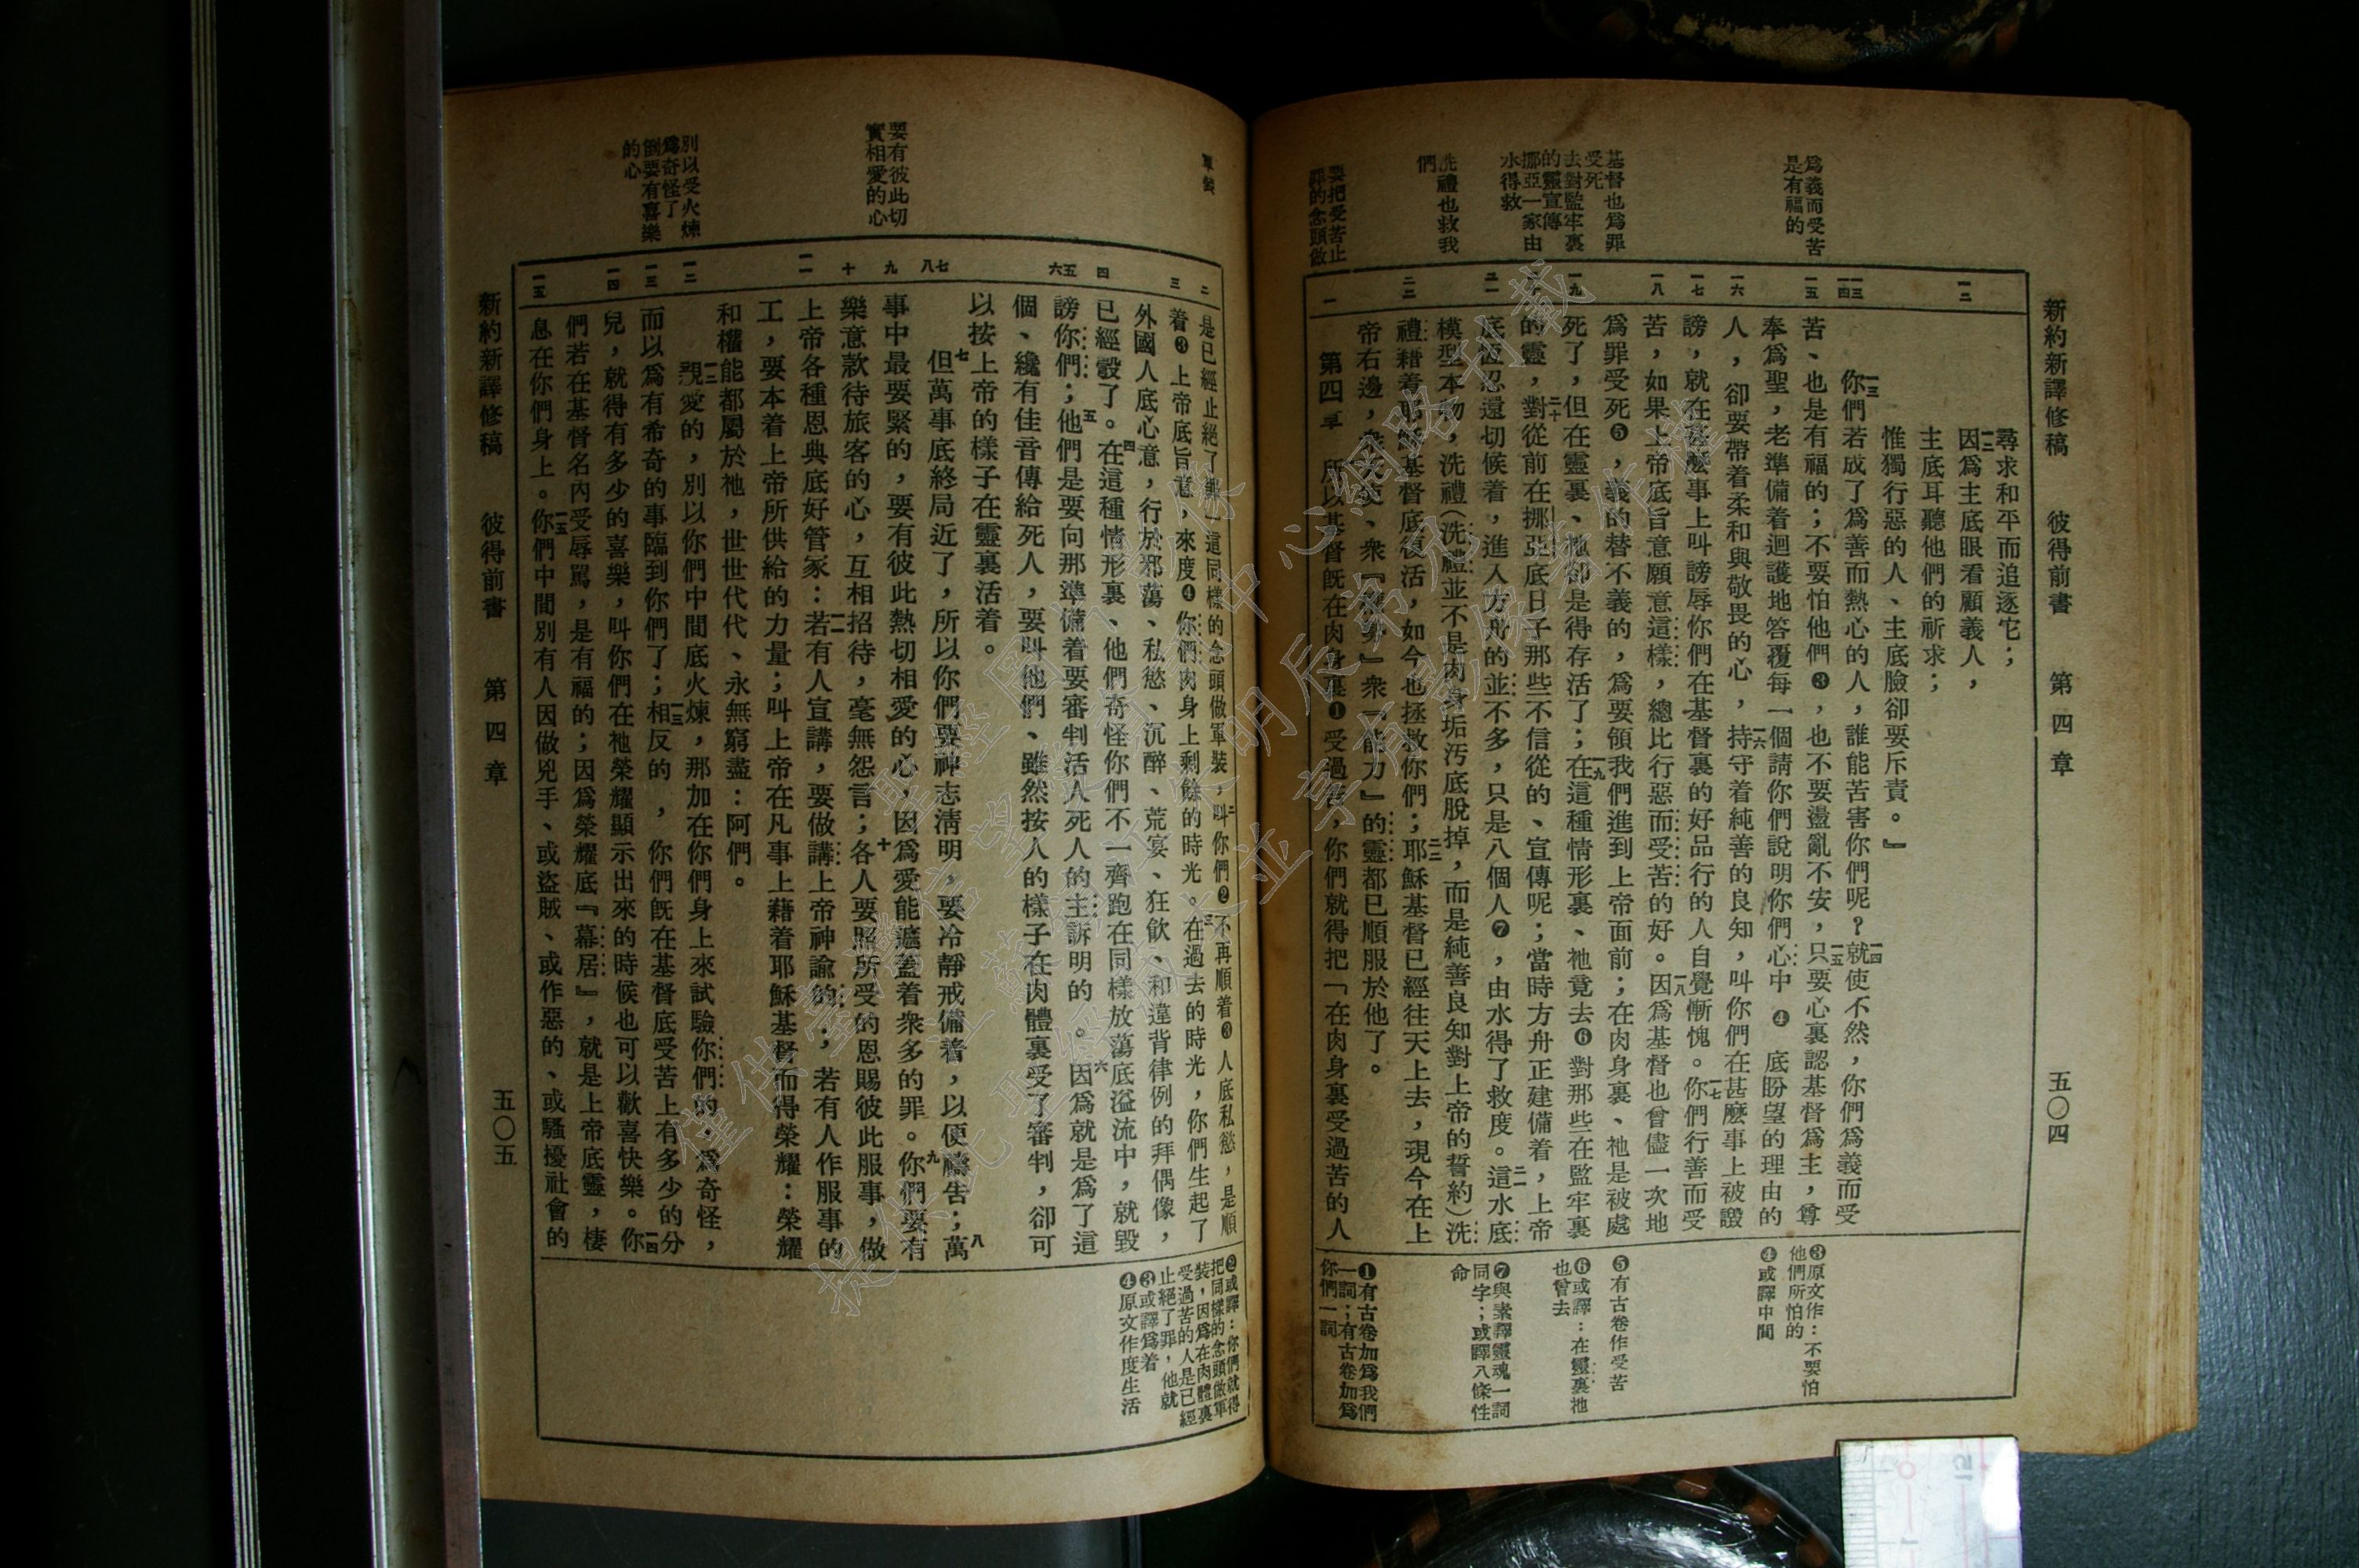 新約新譯修稿　彼得前書　第四章　五〇四
爲義而受苦
是有福的
基督也爲罪
受死
去對監牢裏
的靈宣傳
挪亞一家由
水得救
洗禮也救我
們
要把受苦止
罪的念頭做
尋求和平而追逐它；
一二因爲主底眼看顧義人，
主底耳聽他們的祈求；
惟獨行惡的人、主底臉卻要斥責。』
一三你們若成了爲善而熱心的人，誰能苦害你們呢？一四就使不然，你們爲義而受
苦、也是有福的；不要怕他們❸，也不要盪亂不安，一五只要心裏認基督爲主，尊
奉爲聖，老準備着迴護地答覆每一個請你們說明你們心中❹底盼望的理由的
人，卻要帶着柔和與敬畏的心，一六持守着純善的良知，叫你們在甚麽事上被譭
謗，就在甚麽事上叫謗辱你們在基督裏的好品行的人自覺慚愧。一七你們行善而受
苦，如果上帝底旨意願意這樣，總比行惡而受苦的好。一八因爲基督也曾儘一次地
爲罪受死❺，義的替不義的，爲要領我們進到上帝面前；在肉身裏、祂是被處
死了，但在靈裏、祂卻是得存活了；一九在這種情形裏、祂竟去❻對那些在監牢裏
的靈，二十對從前在挪亞底日子那些不信從的、宣傳呢；當時方舟正建備着，上帝
底恆忍還切候着，進入方舟的並不多，只是八個人❼，由水得了救度。二一這水底
模型本物，洗禮（洗禮並不是肉身垢汚底脫掉，而是純善良知對上帝的誓約）洗
禮藉着耶穌基督底復活，如今也拯救你們；二二耶穌基督已經往天上去，現今在上
帝右邊，衆天使、衆『權勢』衆『能力』的靈都已順服於他了。
第四章　所以基督旣在肉身裏❶受過苦，你們就得把「在肉身裏受過苦的人
❸原文作：不要怕
他們所怕的
❹或譯中間
❺有古卷作受苦
❻或譯：在靈裏祂
也曾去
❼與素譯靈魂一詞
同字；或譯八條性
命
❶有古卷加爲我們
一詞；有古卷加爲
你們一詞
軍裝
要有彼此切
實相愛的心
別以受火煉
爲奇怪了
倒要有喜樂
的心
是已經止絕了罪」這同樣的念頭做軍裝，二叫你們❷不再順着❸人底私慾，是順
着❸上帝底旨意，來度❹你們肉身上剩餘的時光。三在過去的時光，你們生起了
外國人底心意，行於邪蕩、私慾、沉醉、荒宴、狂飲、和違背律例的拜偶像，
已經彀了。四在這種情形裏、他們奇怪你們不一齊跑在同樣放蕩底溢流中，就毀
謗你們；五他們是要向那準備着要審判活人死人的主訴明的。六因爲就是爲了這
個、纔有佳音傳給死人，要叫他們、雖然按人的樣子在肉體裏受了審判，卻可
以按上帝的樣子在靈裏活着。
七但萬事底終局近了，所以你們要神志淸明，要冷靜戒備着，以便禱告；八萬
事中最要緊的，要有彼此熱切相愛的心，因爲愛能遮蓋着衆多的罪。九你們要有
樂意款待旅客的心，互相招待，毫無怨言；十各人要照所受的恩賜彼此服事，做
上帝各種恩典底好管家：一一若有人宣講，要做講上帝神諭的；若有人作服事的
工，要本着上帝所供給的力量；叫上帝在凡事上藉着耶穌基督而得榮耀：榮耀
和權能都屬於祂，世世代代、永無窮盡：阿們。
一二親愛的，別以你們中間底火煉，那加在你們身上來試驗你們的，爲奇怪，
而以爲有希奇的事臨到你們了；一三相反的，你們旣在基督底受苦上有多少的分
兒，就得有多少的喜樂，叫你們在祂榮耀顯示出來的時候也可以歡喜快樂。一四你
們若在基督名內受辱罵，是有福的；因爲榮耀底『幕居』，就是上帝底靈，棲
息在你們身上。一五你們中間別有人因做兇手、或盜賊、或作惡的、或騷擾社會的
❷或譯：你們就得
把同樣的念頭做軍
裝，因爲在肉體裏
受過苦的人是已經
止絕了罪，他就
❸或譯爲着
❹原文作度生活
新約新譯修稿　彼得前書　第四章　五〇五